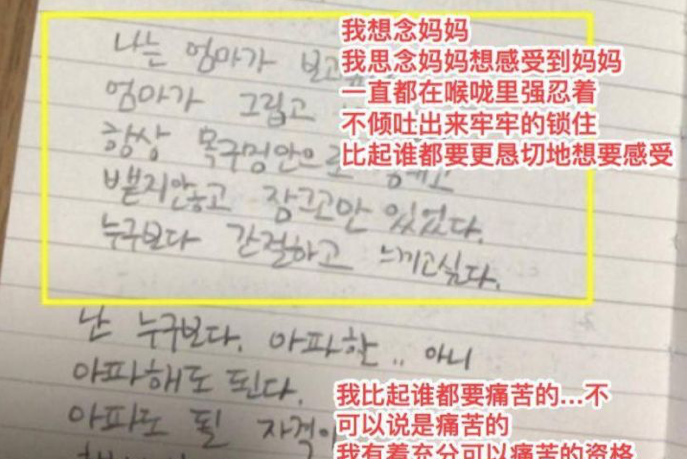 나는 엄마가 보고
我想念妈妈
엄마가 그립고
我思念妈妈想感受到妈妈
一直都在喉咙里强忍着
항상 목구멍안으로
不倾吐出来牢牢的锁住
比起谁都要更恳切地想要感受
뱉지안하고 잠그고만 있었다.
누구보다 간절하고 느끼고싶다.
난 누구보다. 아파한.. 아니
아파해도 된다.
我比起谁都要痛苦的...不
아파도 될 자격이
可以说是痛苦的
我有着充分可以痛苦的资格